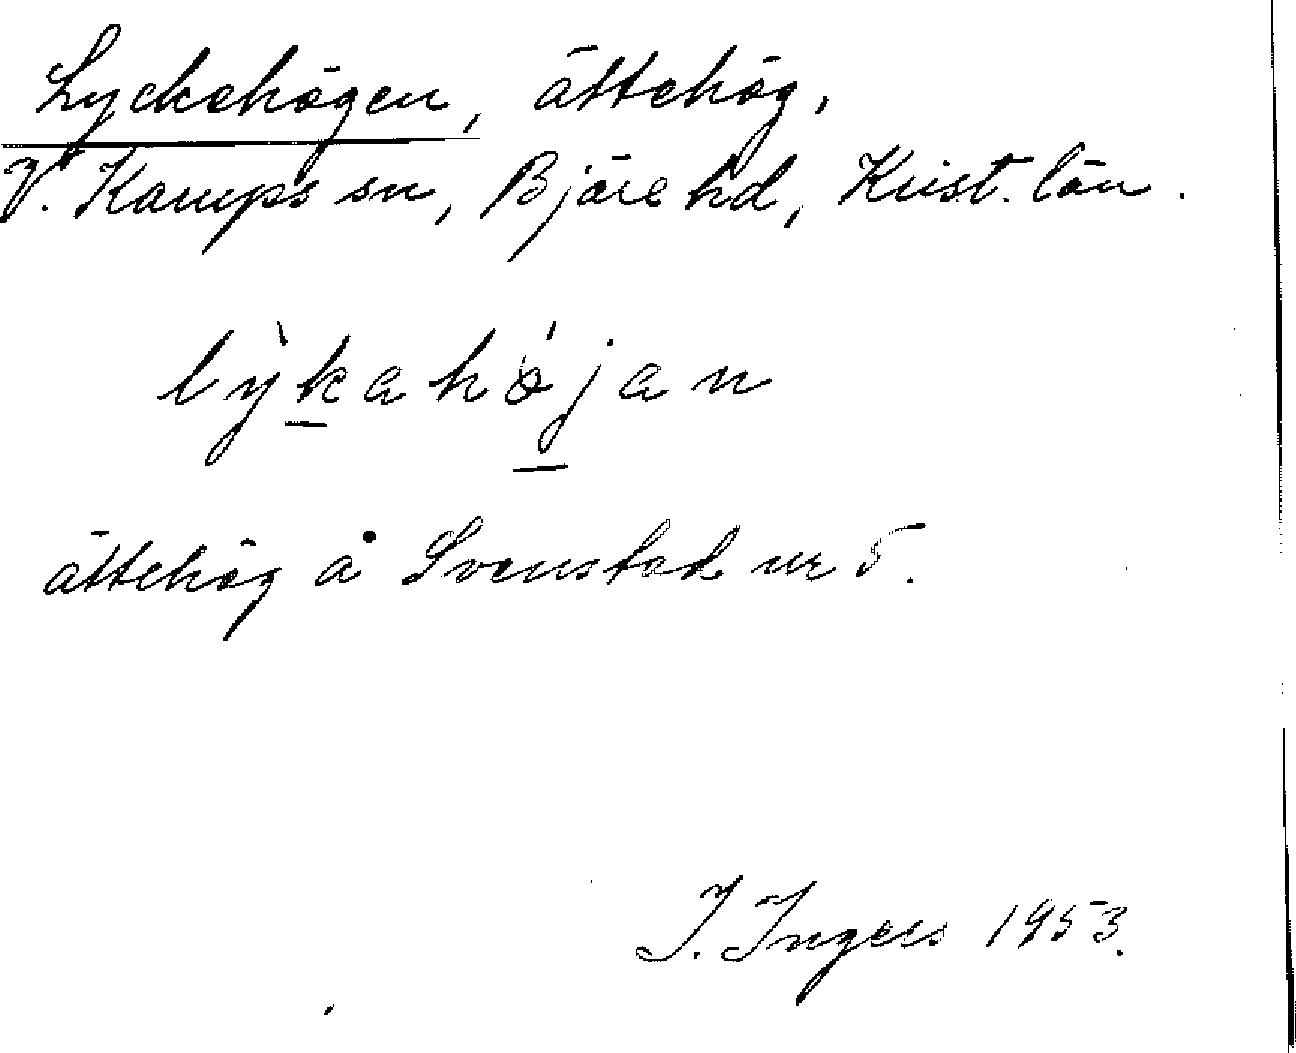 Lyckehögen, ättehög,
V. Karups sn, Bjäre hd, Krist. län.
lỳkahǿjan
ättehög å Svenstad nr 5.
I. Ingers 1953.